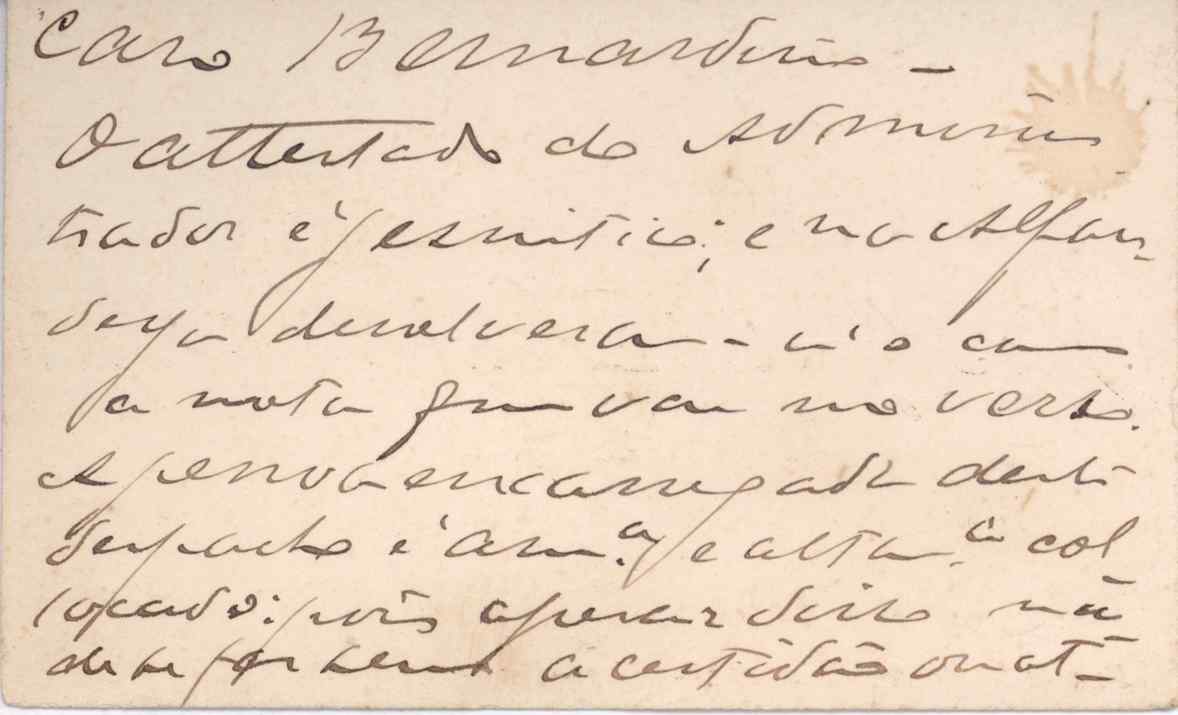 Caro Bernardino –
O attestado do Adminis
trador é jesuitico; e na Alfan-
dega devolveram-m'o com
a nota que vae no verso.
A pessoa encarregada deste
despacho é am.º e altam.te col
locado: pois apesar disso não
a certidão ou at-